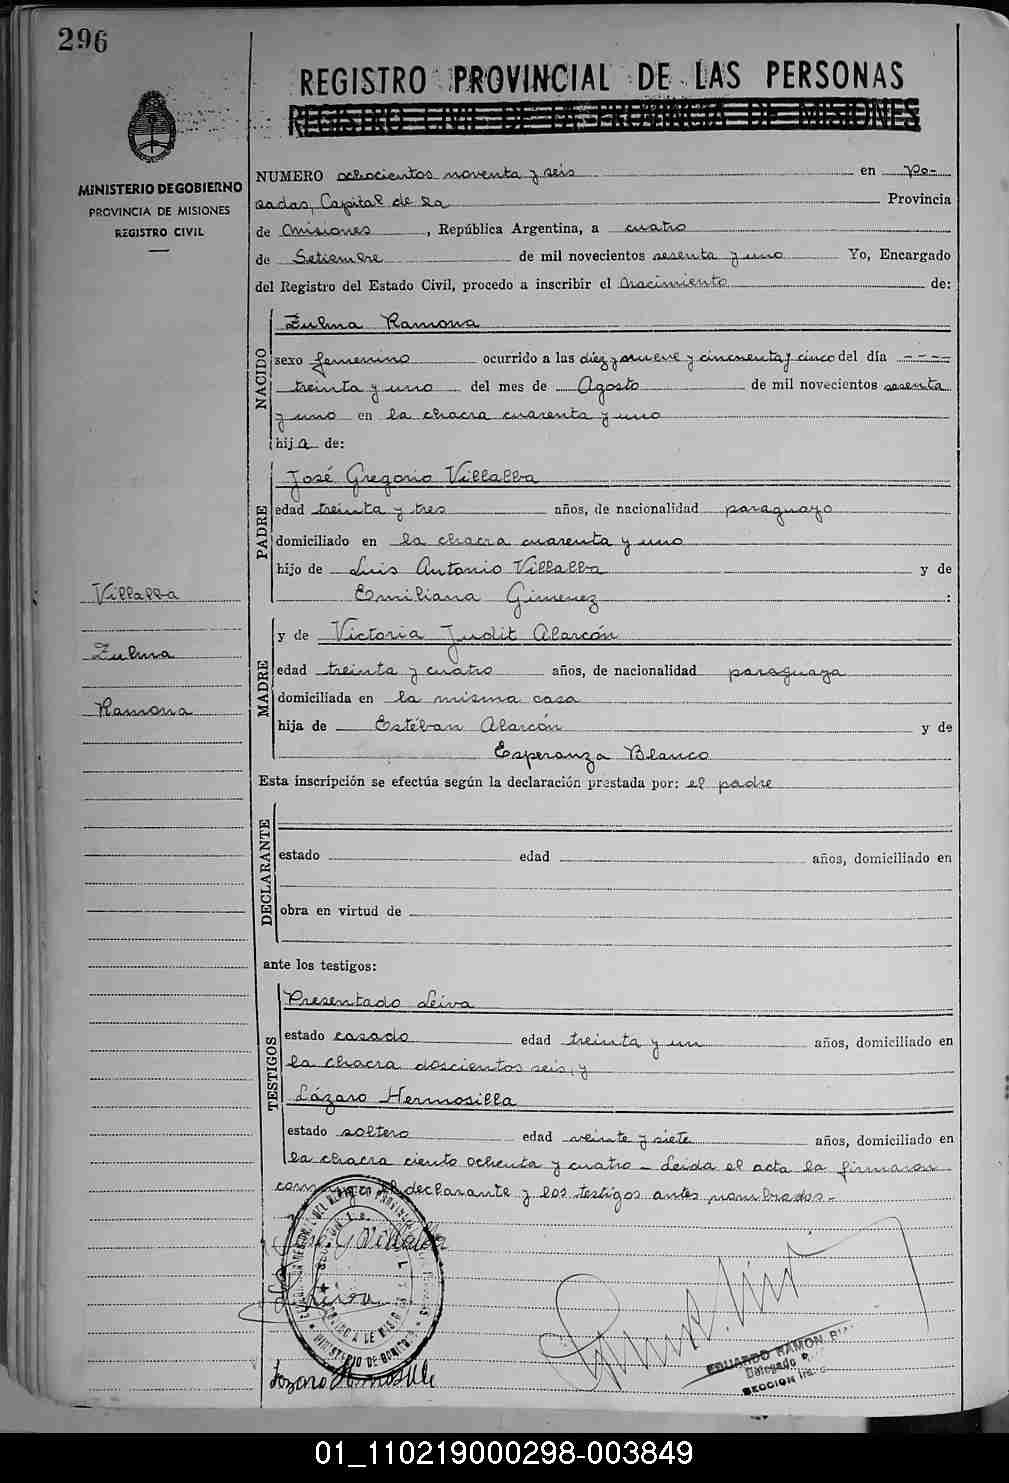 296
REGISTRO PROVINCIAL DE LAS PERSONAS
REGISTRO CIVIL DE LA PROVINCIA DE MISIONES
MINISTERIO DE GOBIERNO
PROVINCIA DE MISIONES
REGISTRO CIVIL
NUMERO ochocientos noventa y seis en Po-
sadas, Capital de la Provincia
de Misiones, República Argentina, a cuatro
de Setiembre de mil novecientos sesenta y uno Yo, Encargado
del Registro del Estado Civil, procedo a inscribir el nacimiento de:
NACIDO
Zulma Ramona
sexo femenino ocurrido a las diez y nueve y cincuenta y cinco del día ----
treinta y uno del mes de Agosto de mil novecientos sesenta
y uno en la chacra cuarenta y uno
hija de:
PADRE
José Gregorio Villalba
edad treinta y tres años, de nacionalidad paraguayo
domiciliado en la chacra cuarenta y uno
hijo de Luis Antonio Villalba y de
Emiliana Gimenez :
Villalba
Zulma
Ramona
MADRE
y de Victoria Judit Alarcón
edad treinta y cuatro años, de nacionalidad paraguaya
domiciliada en la misma casa
hija de Estéban Alarcón y de
Esperanza Blanco
Esta inscripción se efectúa según la declaración prestada por: el padre
DECLARANTE
estado edad años, domiciliado en
obra en virtud de
ante los testigos:
TESTIGOS
Presentado Leiva
estado casado edad treinta y un años, domiciliado en
la chacra doscientos seis, y
Lázaro Hermosilla
estado soltero edad veinte y siete años, domiciliado en
la chacra ciento ochenta y cuatro - Leida el acta la firmaron
conmigo el declarante y los testigos antes nombrados-
G Villalba
Leiva
Lozaro Hermosilla
MINISTERIO DE GOBIERNO
EDUARDO RAMON
Delegado
SECCION 1ra.
01_110219000298-003849